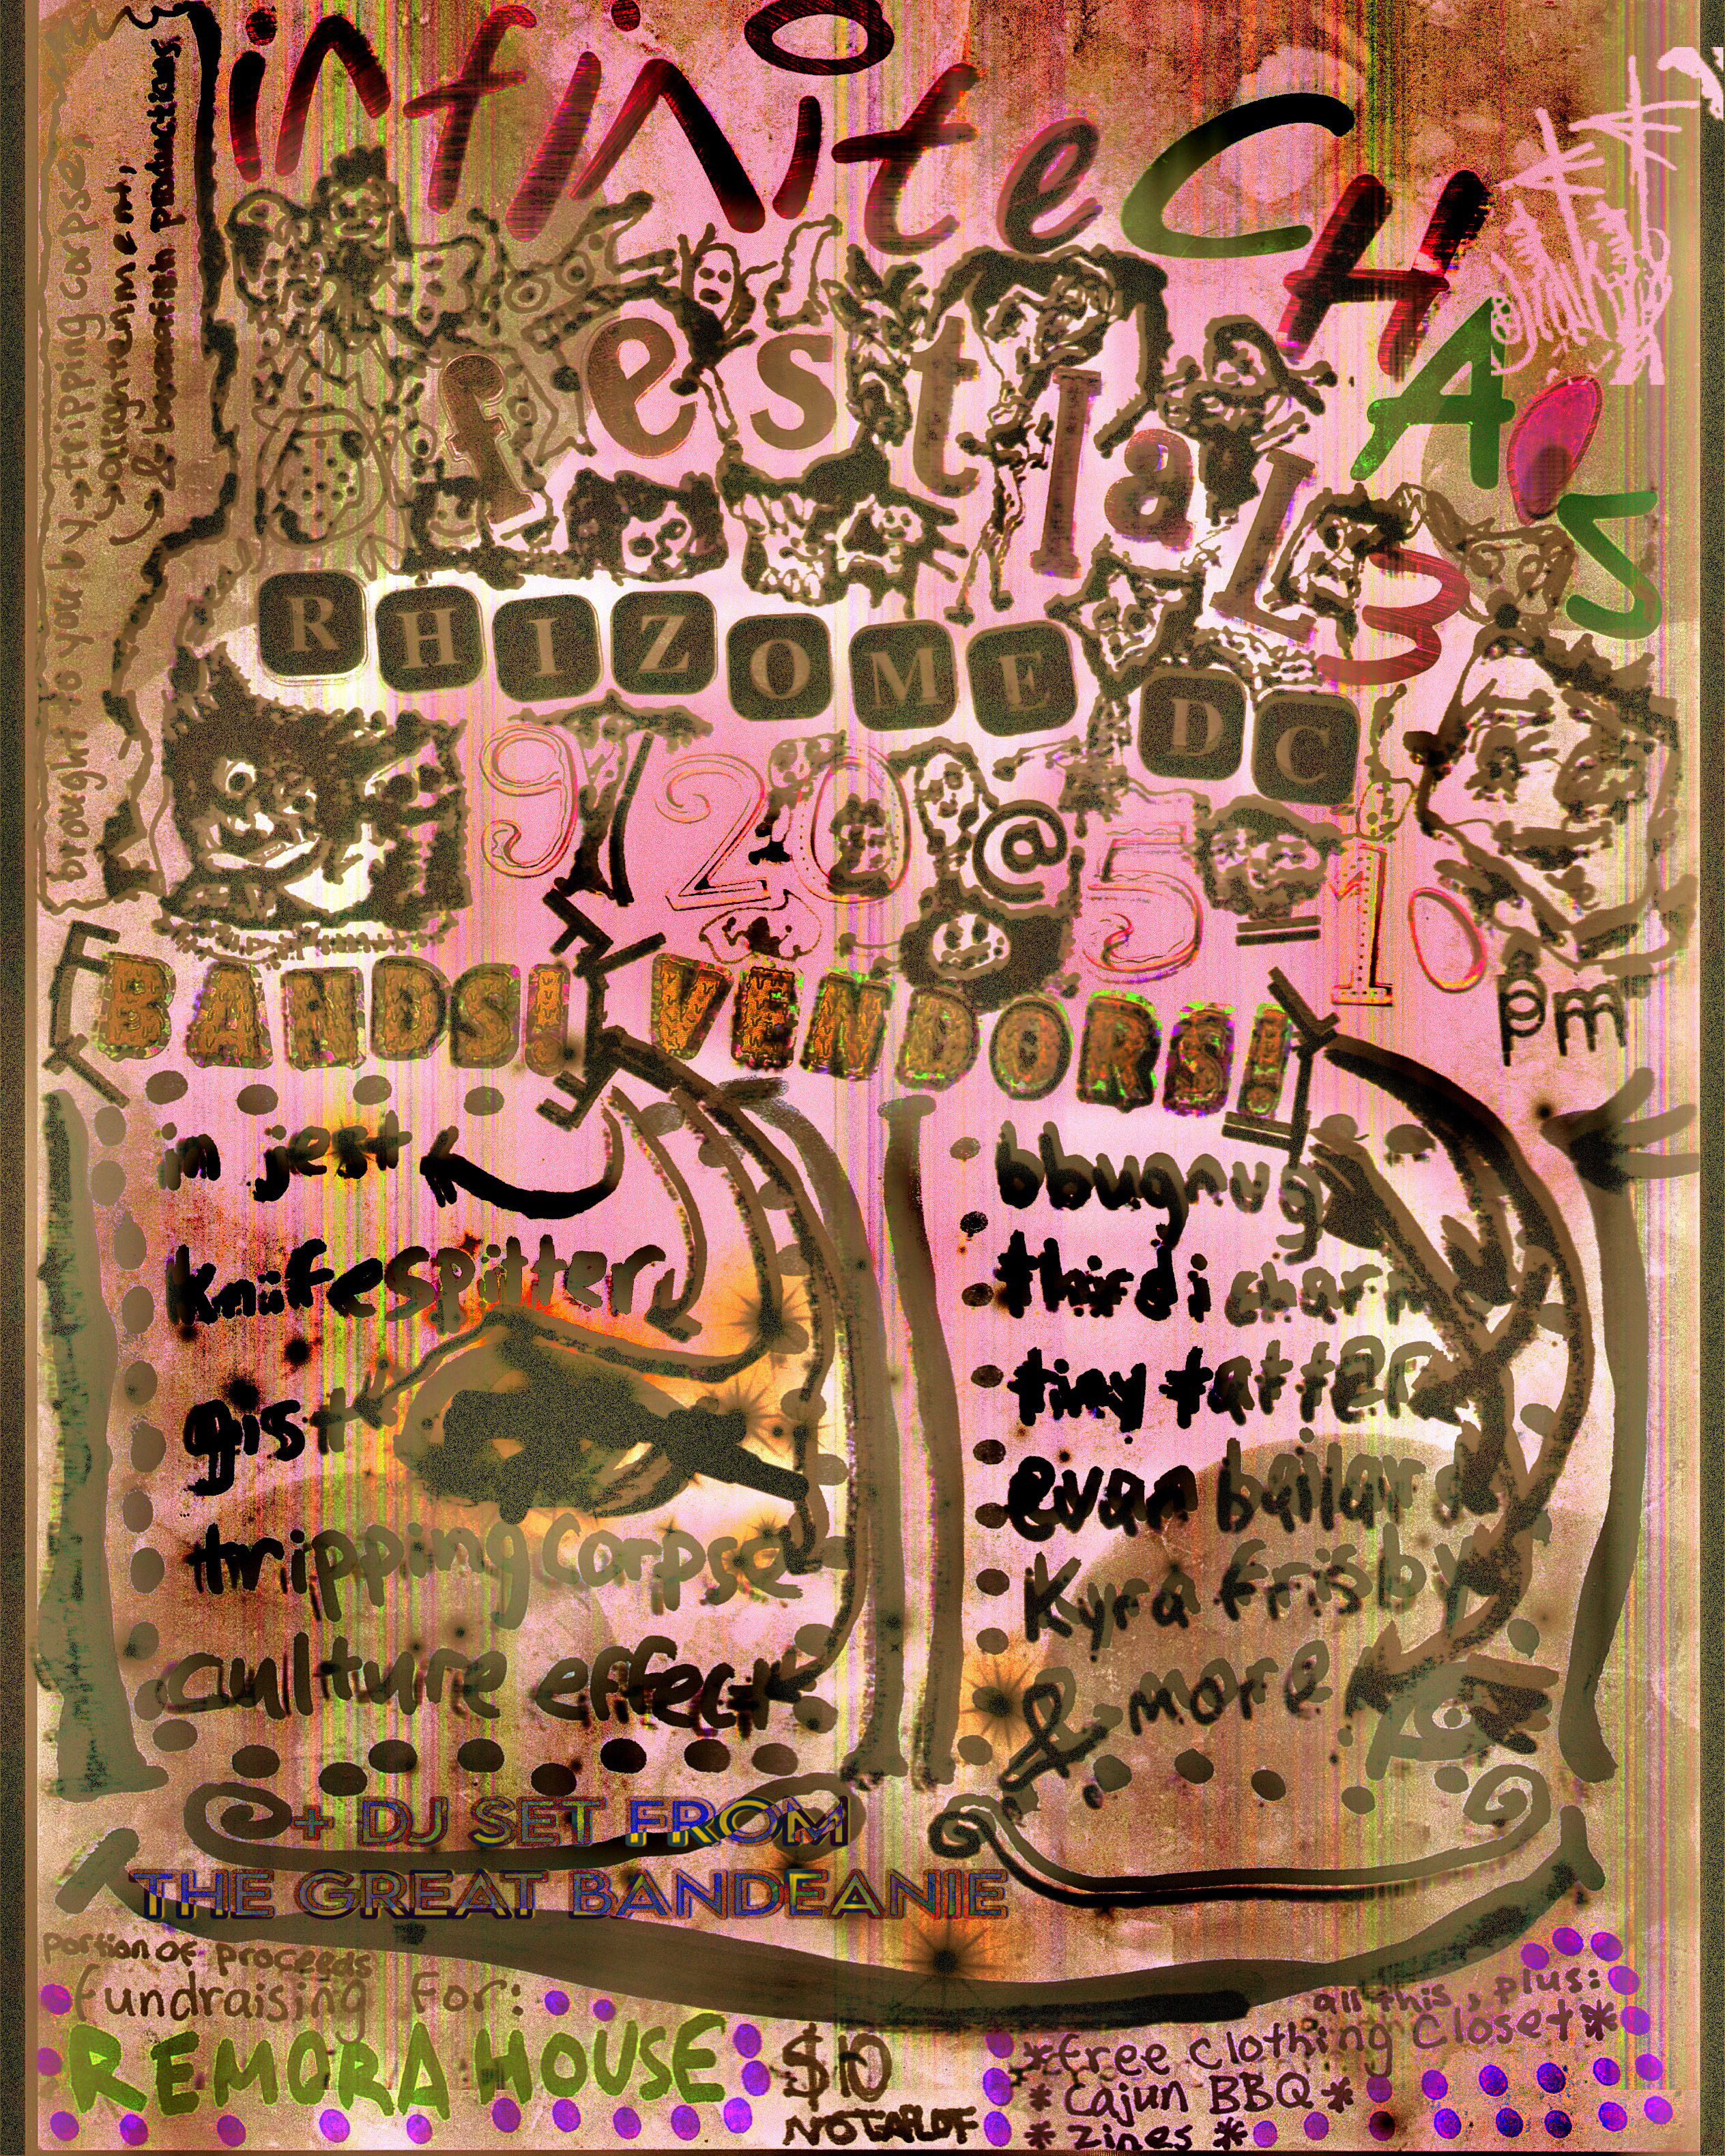 infinite CHAOS
festival 3
brought to you by → tripping corpse,
→ alrightenment,
→ & bananafish productions
RHIZOME DC
9/20 @ 5-10
pm
FT
BANDS! VENDORS!
in jest
knifespitter
gist
tripping corpse
culture effect
bbugrug
third i charm
tiny tatter
evan bailard
Kyra frisby
& more
+ DJ SET FROM
THE GREAT BANDEANIE
portion of proceeds
fundraising for:
REMORA HOUSE
$10
NOTAFLOF
all this, plus:
*free clothing closet*
* Cajun BBQ *
* zines *